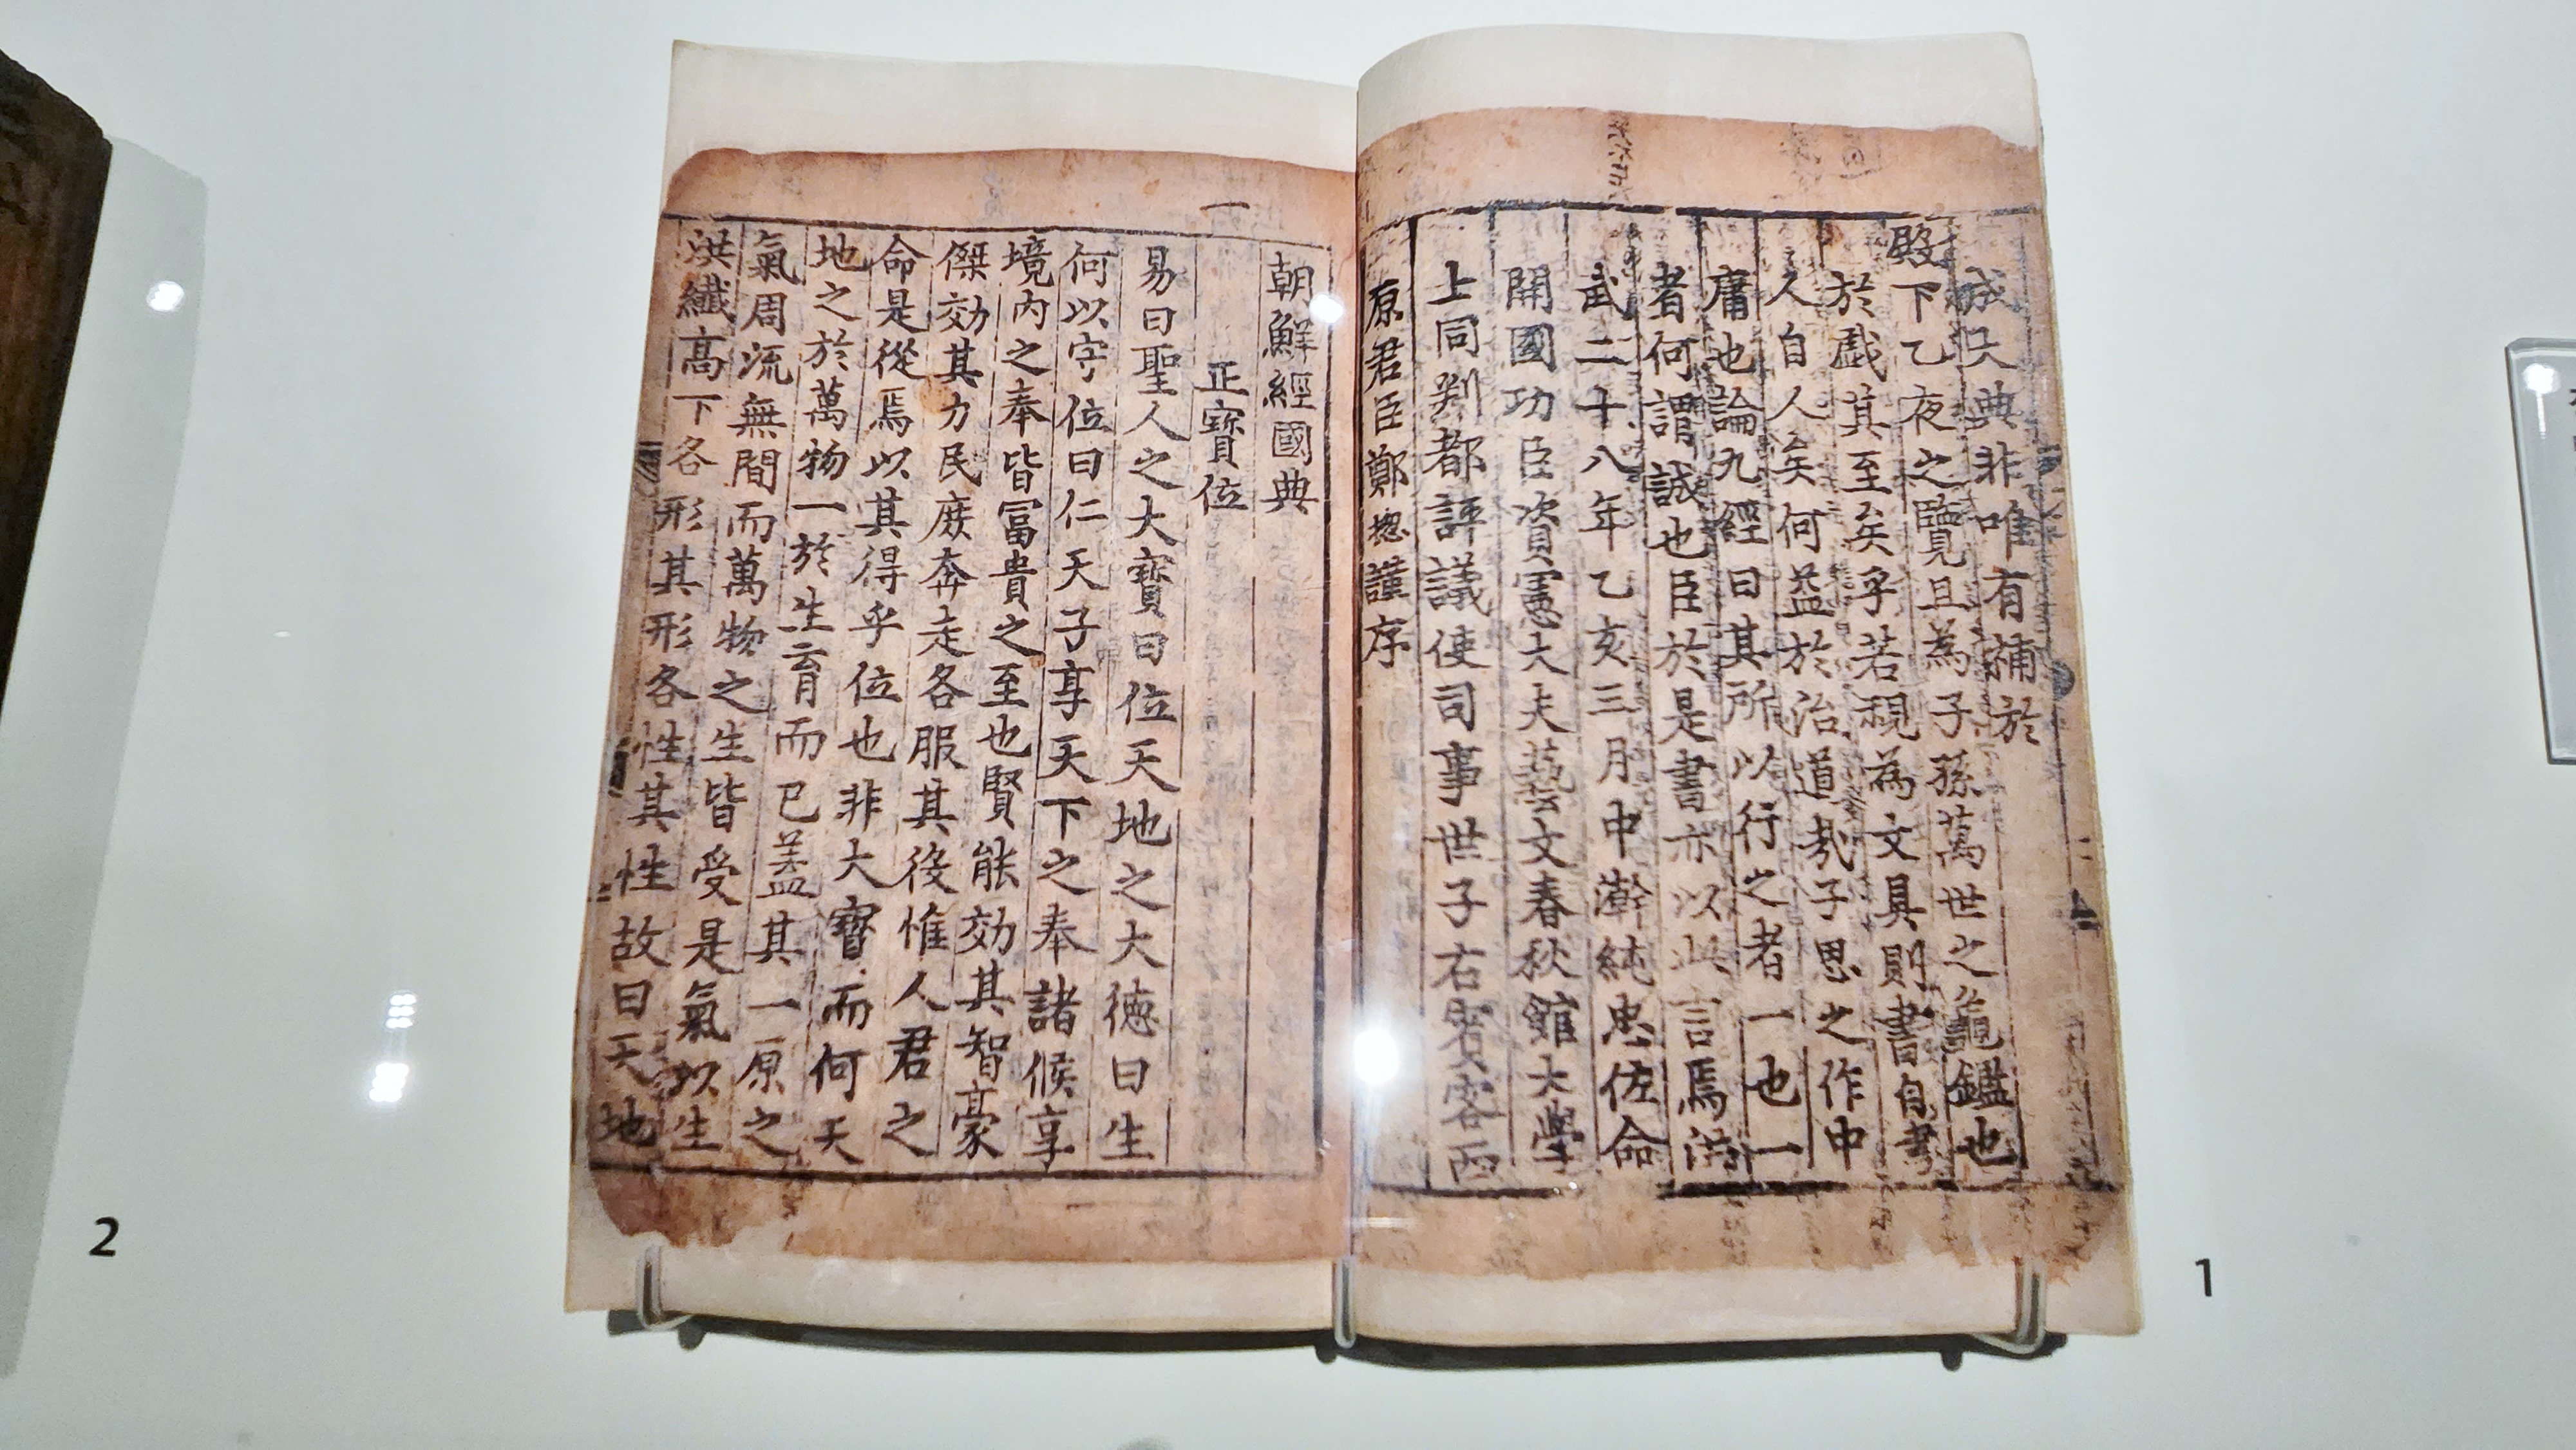 成大典非唯有補於
殿下乙夜之覽且為子孫萬世之龜鑑也
於戲其至矣乎若視為文具則書自書
人自人矣何益於治道哉子思之作中
庸也論九經曰其所以行之者一也一
者何謂誠也臣於是書亦以此言焉洪
武二十八年乙亥三月中澣純忠佐命
開國功臣資憲大夫藝文春秋館大學
上同判都評議使司事世子右賓客西
原君臣鄭摠謹序
朝鮮經國典
一
正寶位
易曰聖人之大寶曰位天地之大德曰生
何以守位曰仁天子享天下之奉諸侯享
境內之奉皆冨貴之至也賢能効其智豪
傑効其力民庶奔走各服其役惟人君之
命是從焉以其得乎位也非大寶而何天
地之於萬物一於生育而已盖其一原之
氣周流無間而萬物之生皆受是氣以生
洪纖高下各形其形各性其性故曰天地
2
1